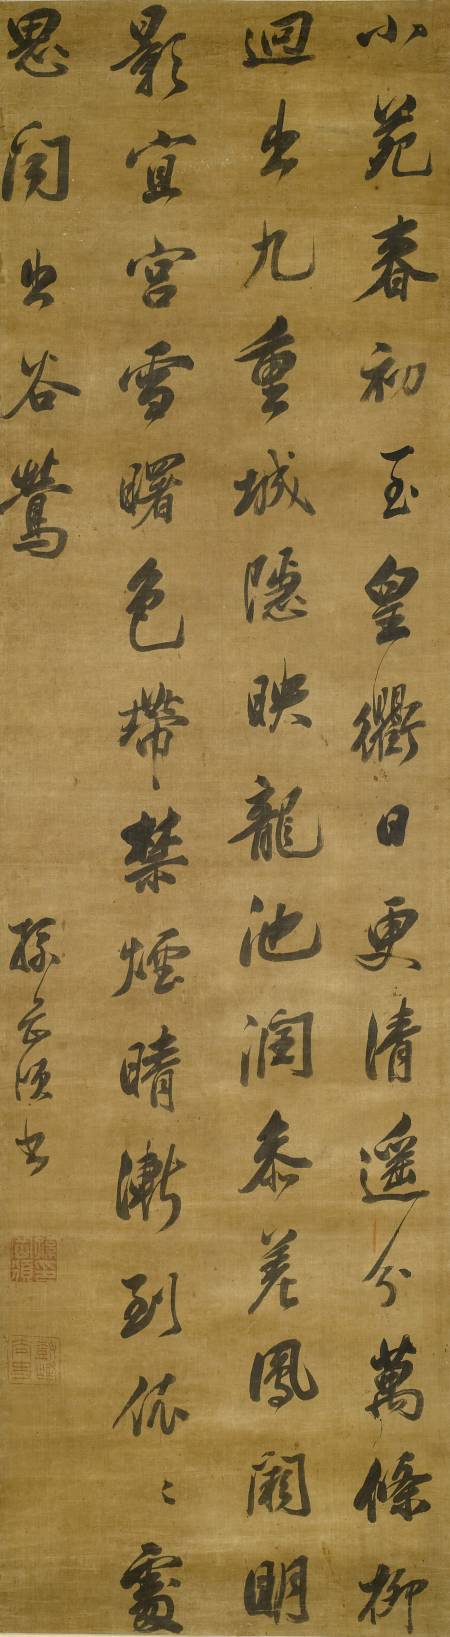 小苑春初至皇衢日更清遥分萬條柳
迴出九重城隱映龍池潤參差鳳闕明
影宜宮雪曙色帶禁煙晴漸到依〻處
思聞出谷鶯
孫岳頒書